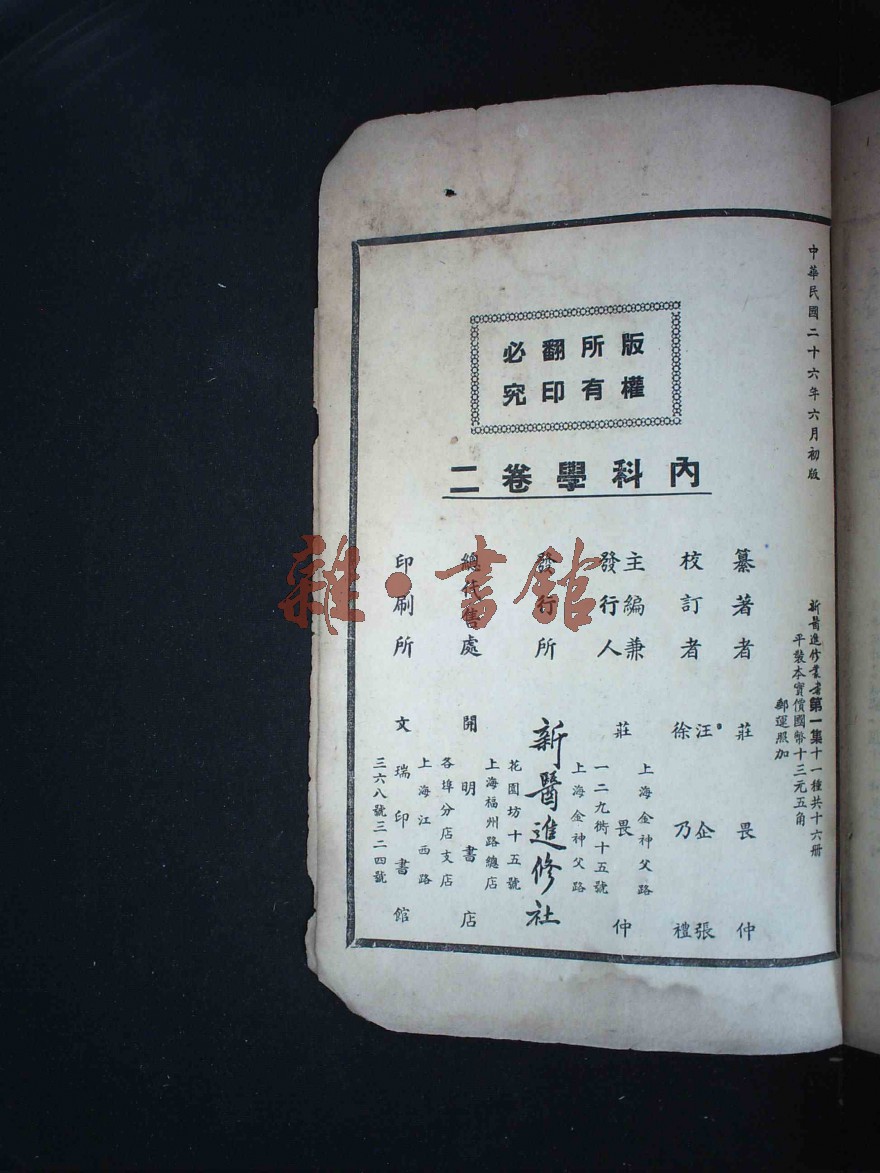 中華民國二十六年六月初版
新醫進修叢書第一集十一種共十六册
平裝本實價國幣十三元五角
郵運照加
版權
所有
翻印
必究
內科學卷二
纂著者 莊畏仲
校訂者 汪企張
徐乃禮
主編兼
發行人 莊畏仲
上海金神父路
一二九衖十五號
發行所 新醫進修社
上海金神父路
花園坊十五號
總代售處 開明書店
上海福州路總店
各埠分店支店
印刷所 文瑞印書館
上海江西路
三六八號三二四號
雜·書館